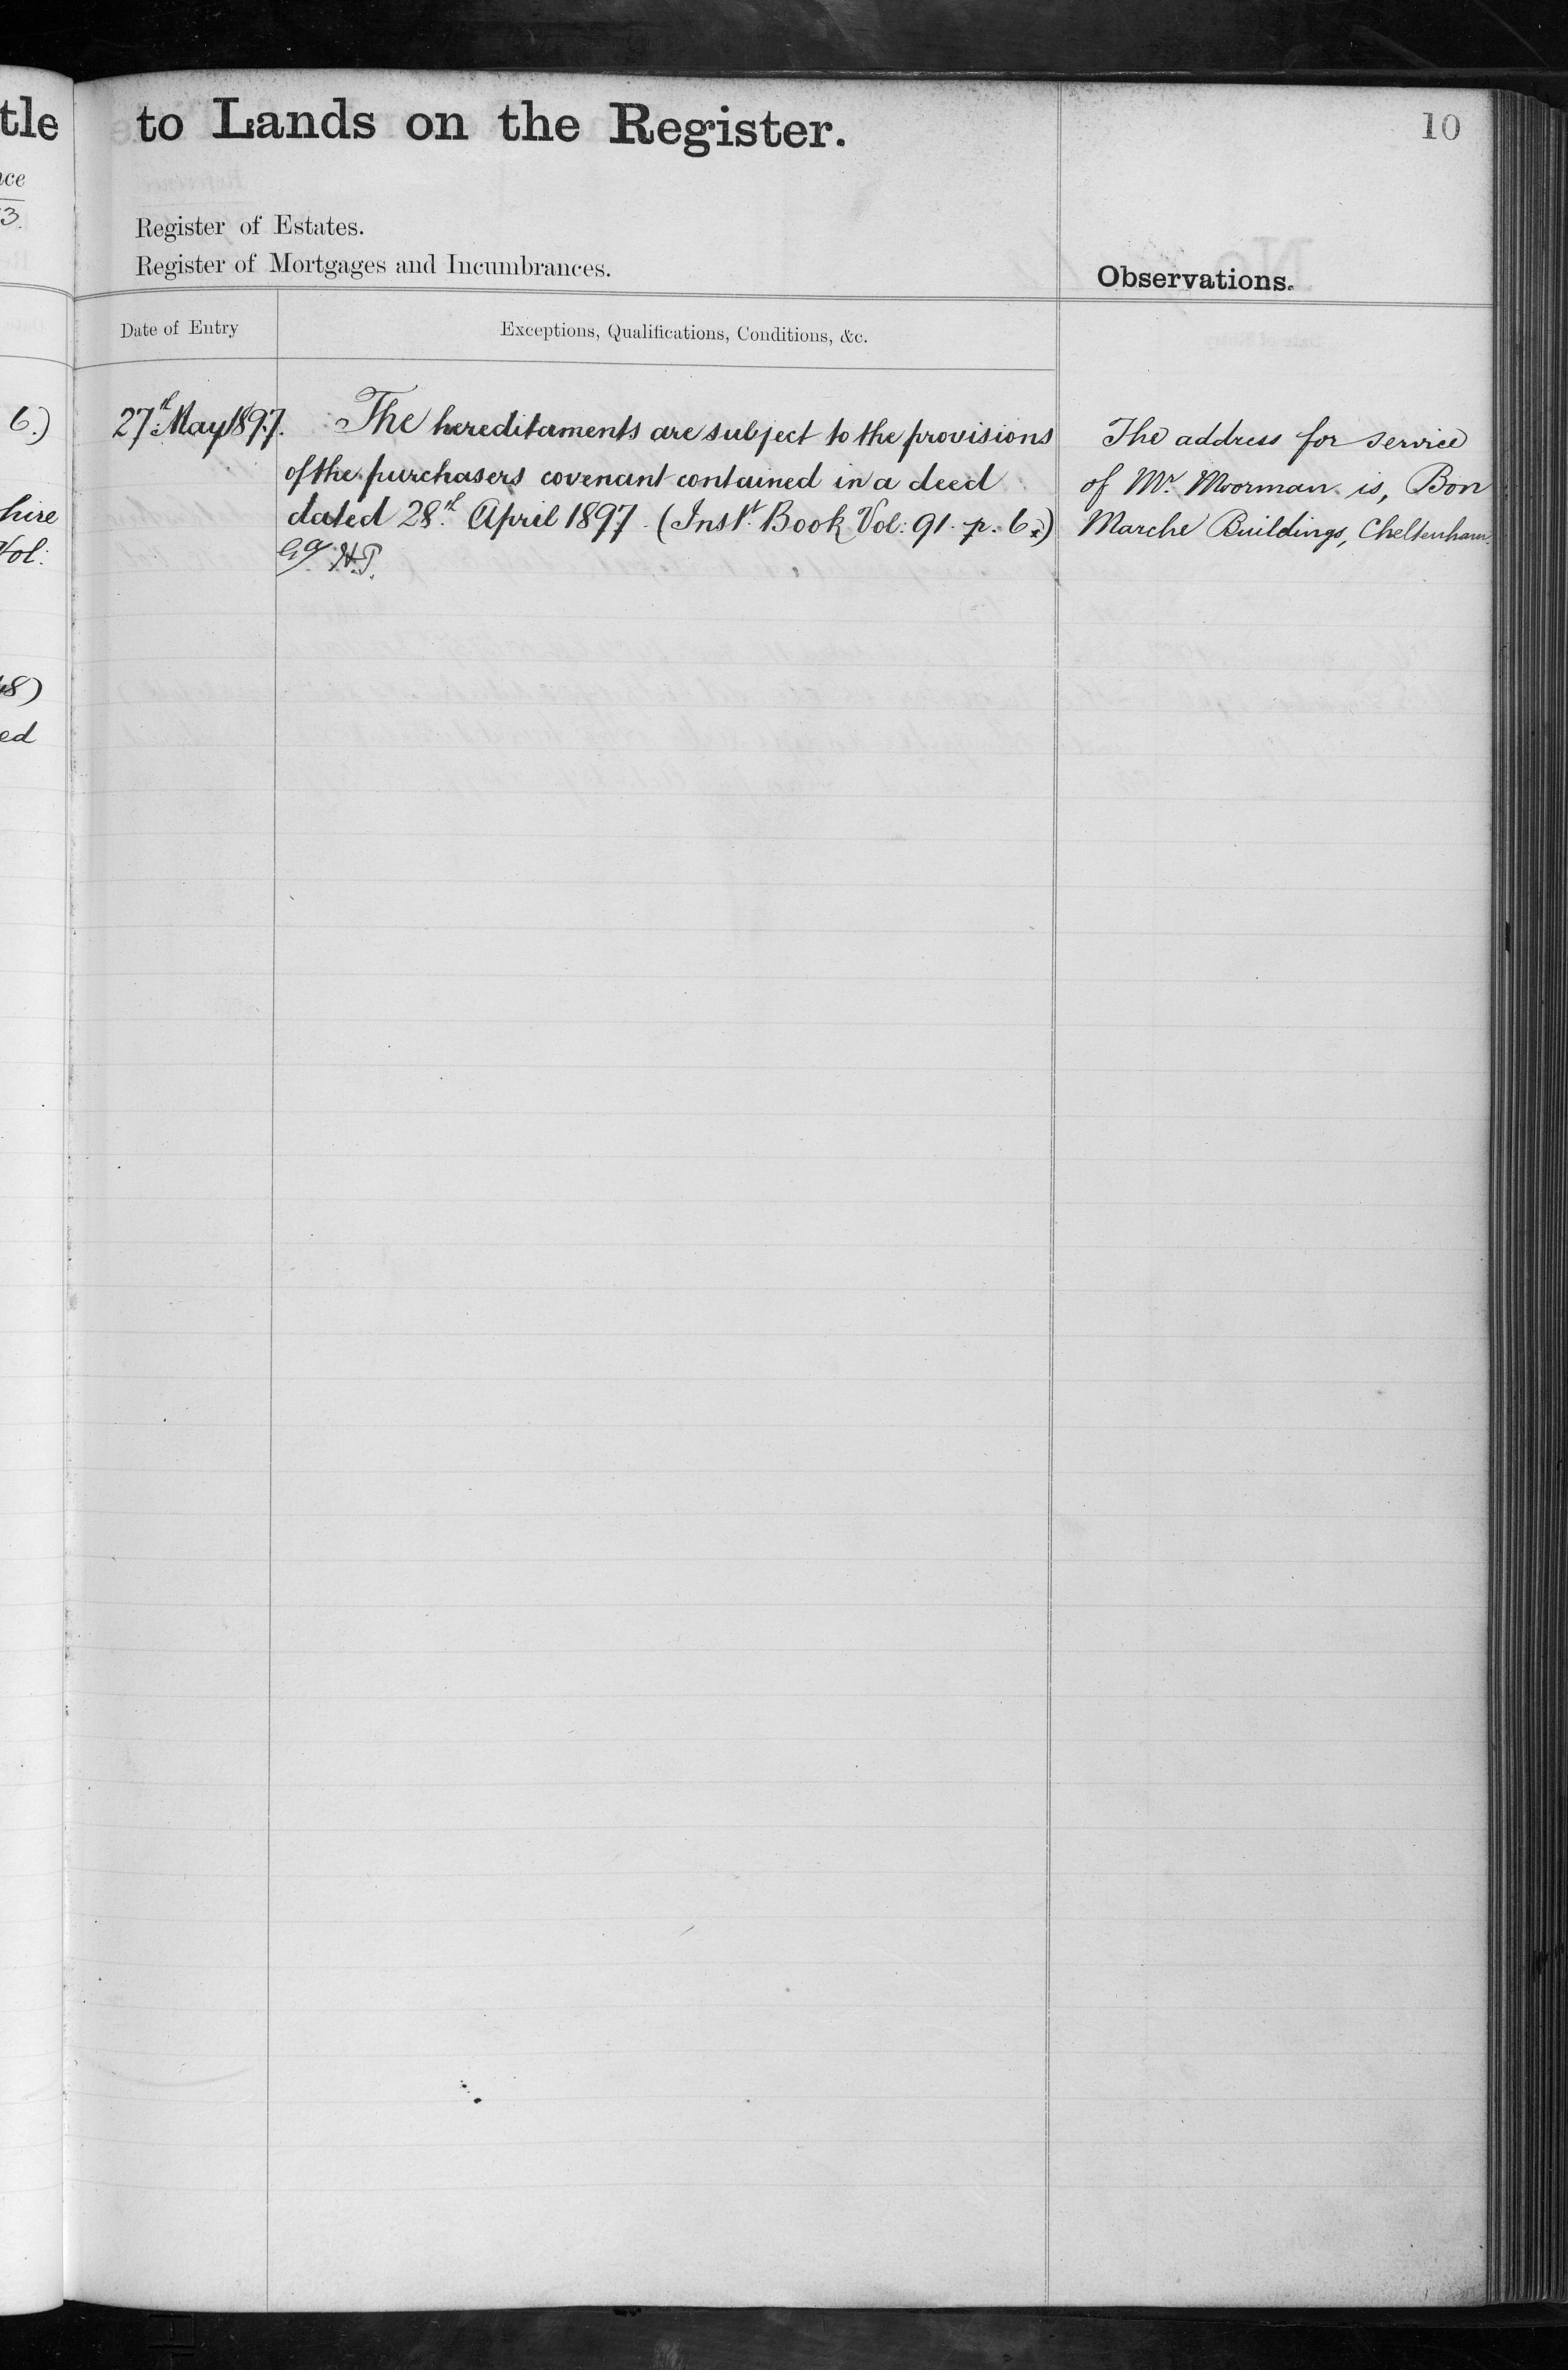 tle
nce
3.
6.)
hire
Vol:
48)
ed
to Lands on the Register.
10
Register of Estates.
Register of Mortgages and Incumbrances.
Observations.
Date of Entry
Exceptions, Qualifications, Conditions, &c.
27th May 1897.
The hereditaments are subject to the provisions
of the purchasers covenant contained in a deed
dated 28th April 1897. (Inst. Book Vol: 91. p. 6.)
H.P.
The address for service
of Mr. Moorman is, Bon
Marche Buildings, Cheltenham.